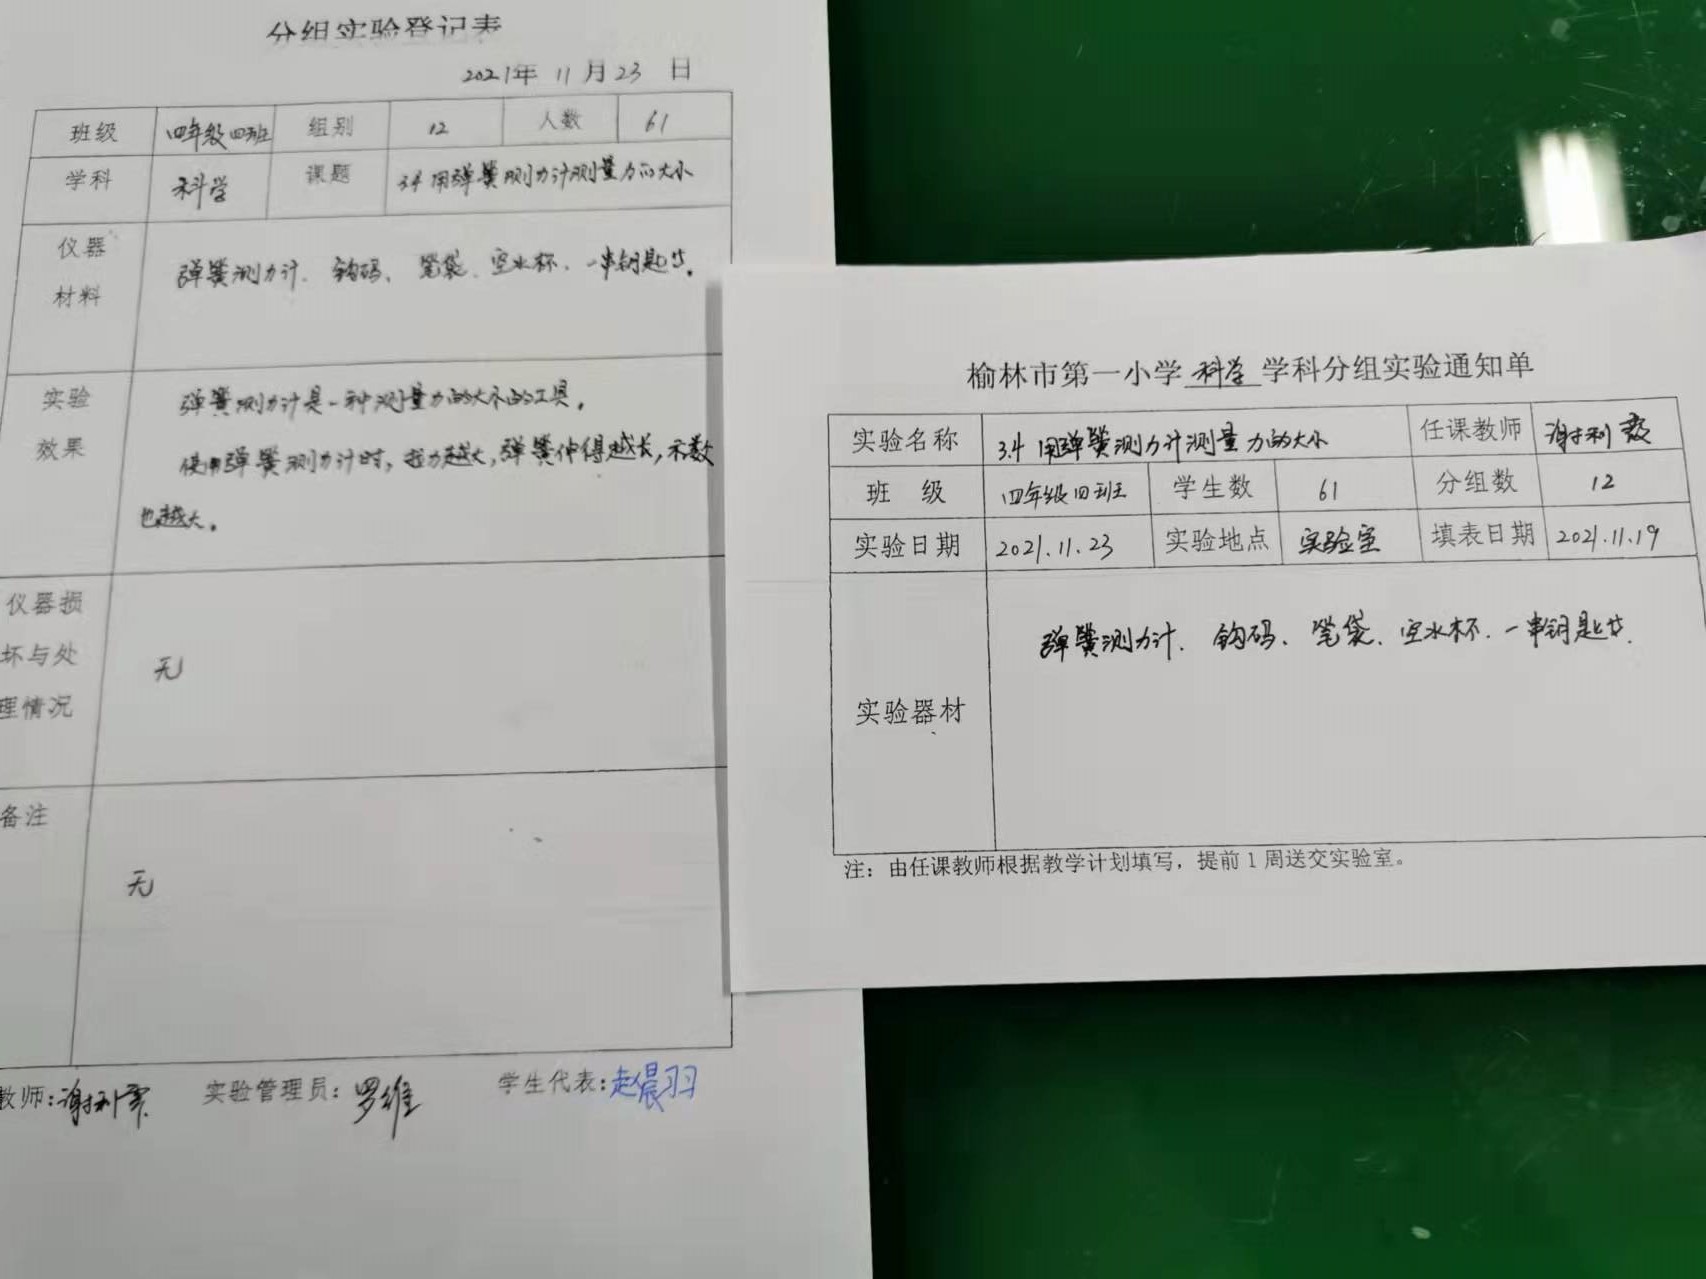 分组实验登记表
2021年 11月23 日
班级 四年级四班 组别 12 人数 61
学科 科学 课题 3.4 用弹簧测力计测量力的大小
仪器
材料
弹簧测力计、钩码、笔袋、空水杯、一串钥匙等。
实验
效果
弹簧测力计是一种测量力的大小的工具。
使用弹簧测力计时,拉力越大,弹簧伸得越长,示数
也越大。
仪器损
坏与处
理情况
无
备注
无
教师: 谢利 实验管理员: 罗维 学生代表: 赵晨羽
榆林市第一小学 科学 学科分组实验通知单
实验名称 3.4 用弹簧测力计测量力的大小 任课教师 谢利
班 级 四年级四班 学生数 61 分组数 12
实验日期 2021.11.23 实验地点 实验室 填表日期 2021.11.19
实验器材
弹簧测力计、钩码、笔袋、空水杯、一串钥匙等.
注：由任课教师根据教学计划填写，提前 1 周送交实验室。